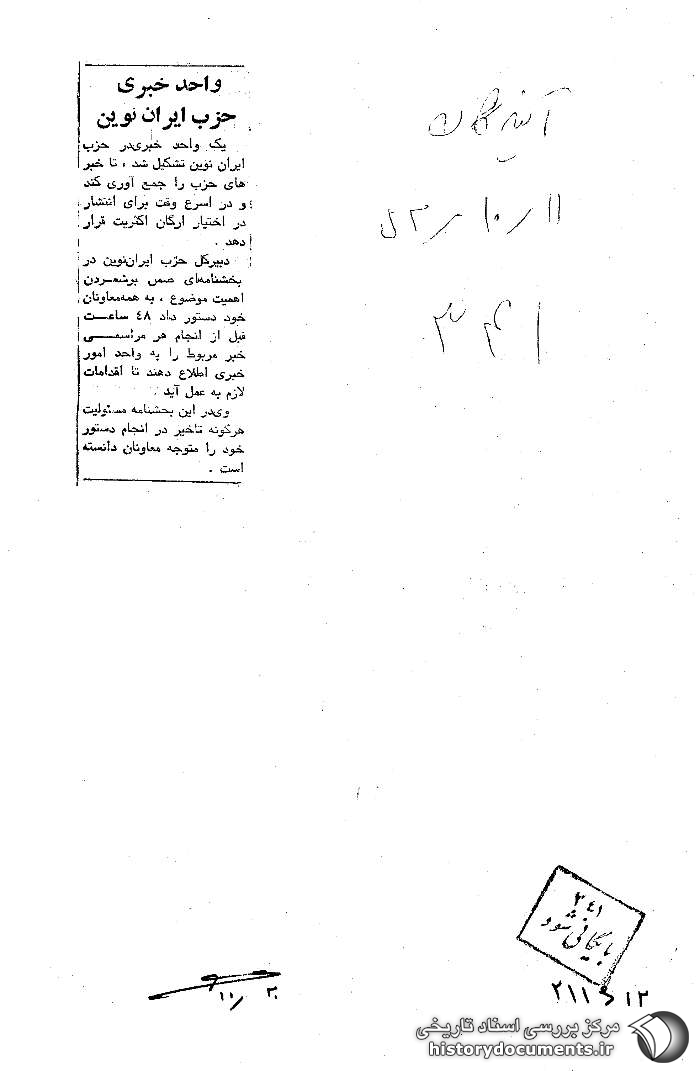 واحد خبری
حزب ایران نوین
یک واحد خبری‌در حزب
ایران نوین تشکیل شد ، تا خبر
های حزب را جمع آوری کند
و در اسرع وقت برای انتشار
در اختیار ارگان اکثریت قرار
دهد .
دبیرکل حزب ایران‌نوین در
بخشنامه‌ای ضمن برشمـردن
اهمیت موضوع ، به همه‌معاونان
خود دستور داد ۴۸ ساعـت
قبل از انجام هر مراسمـی
خبر مربوط را به واحد امور
خبری اطلاع دهند تا اقدامات
لازم به عمل آید .
وی‌در این بخشنامه مسئولیت
هرگونه تاخیر در انجام دستور
خود را متوجه معاونان دانسته
است .
آیندگان
۱۱ / ۱۰ /
۳۴۱
۳۴۱
بایگانی شود
۱۰/
۲۰
مرکز بررسی اسناد تاریخی
historydocuments.ir